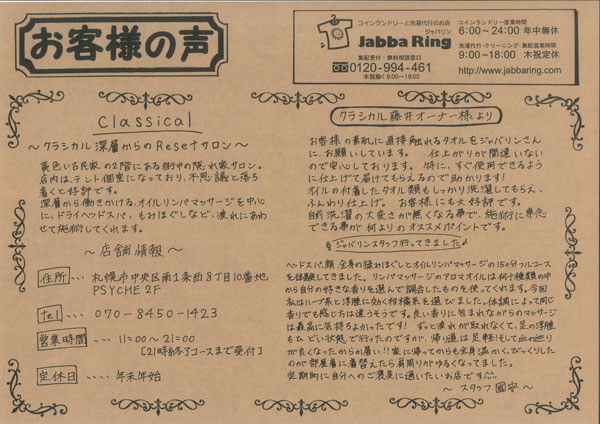 お客様の声
コインランドリーと洗濯代行のお店
ジャバリン
Jabba Ring
集配受付・無料相談窓口
0120-994-461
木祝除く9:00~18:00
コインランドリー営業時間
6:00~24:00 年中無休
洗濯代行・クリーニング・集配営業時間
9:00~18:00 木祝定休
http://www.jabbaring.com
Classical
~クラシカル深層からのResetサロン~
黄色い古民家の2階にある街中の隠れ家サロン。
店内は、テント個室になっており、不思議と落ち
着くと好評です。
深層から働きかける、オイルリンパマッサージを中心
に、ドライヘッドスパ、もみほぐしなど、疲れにあわ
せて施術してくれます。
~店舗情報~
住所 ‥‥ 札幌市中央区南1条西8丁目10番地
PSYCHE 2F
tel ‥‥ 070-8450-1423
営業時間 ‥‥ 11:00~21:00
[21時終了コースまで受付]
定休日 ‥‥ 年末年始
クラシカル藤井オーナー様より
お客様の素肌に直接触れるタオルをジャバリンさん
に、お願いしています。 仕上がりが間違いない
ので安心しております。 特に、すぐ使用できるよう
に仕上げて届けてもらえるので助かります!
オイルの付着したタオル類もしっかり洗濯してもらえ、
ふんわり仕上げ。 お客様にも大好評です。
自前洗濯の大変さが無くなる事で、施術に専念
できる事が何よりのオススメポイントです。
ジャバリンスタッフ行ってきました
ヘッドスパ、顔、全身の揉みほぐしとオイルリンパマッサージの150分フルコース
を体験してきました。リンパマッサージのアロマオイルは何十種類の中
から自分の好きな香りを選んで調合したものを使ってくれます。今回
私はハーブ系と浮腫に効く柑橘系を選びました。体調によって同じ
香りでも感じ方は違うそうです。良い香りに包まれながらのマッサージ
は最高に気持ちよかったです! ずっと疲れが取れなくて、足の浮腫
もひどい状態で行ったのですが、帰り道は足軽!そして血の巡り
が良くなったからか暑い!!家に帰ってからも全身温かく、びっくりした
のが部屋着に着替えたら肩周りがゆるくなってました。
定期的に自分へのご褒美に通いたいお店です
~スタッフ 國安~